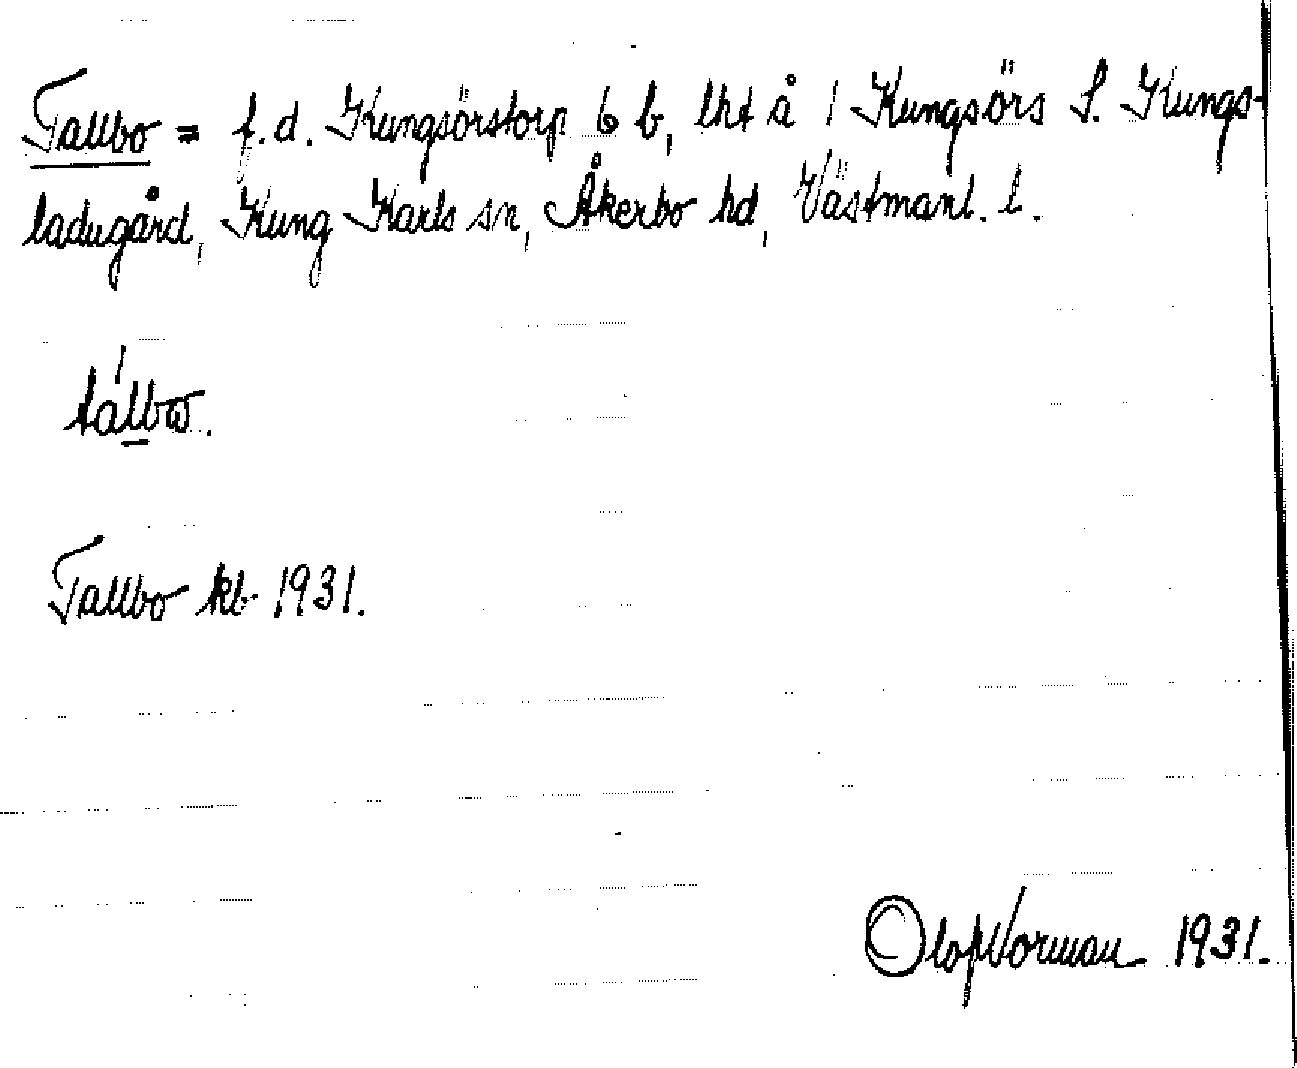 Tallbo = f.d. Kungsörstorp 6 b, lht å 1 Kungsörs S. Kungs-
ladugård, Kung Karls sn, Åkerbo hd, Västmanl. l.
tállbω.
Tallbo kb 1931.
Olof Norman 1931.